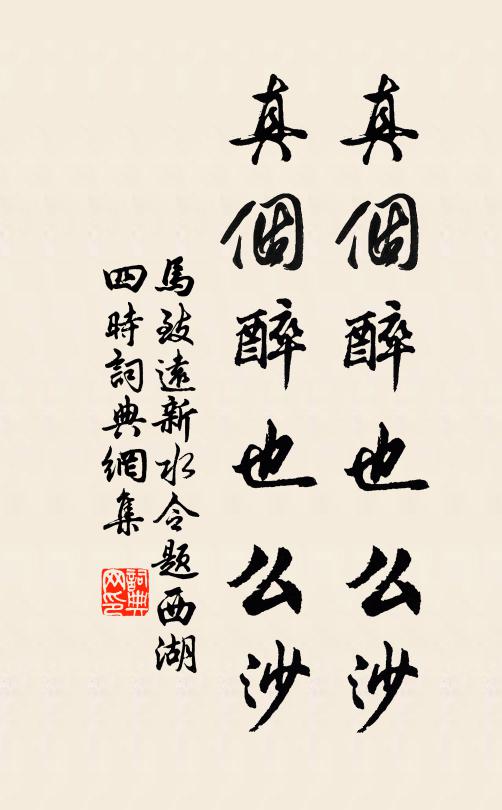 真個醉也么沙
真個醉也么沙
馬致遠新水令題西湖
四時詞典網集
詞典网印